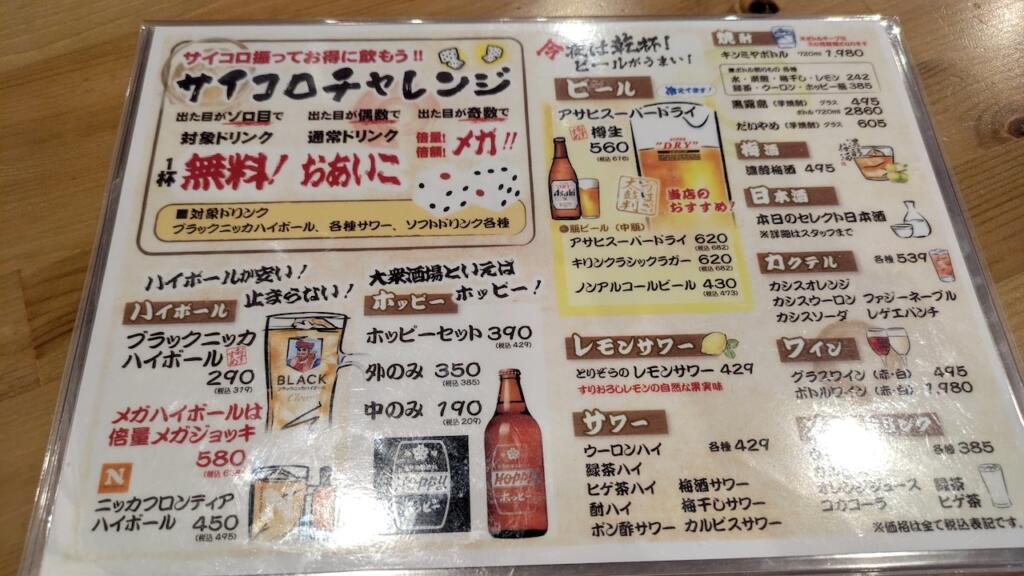 サイコロ振ってお得に飲もう!!
サイコロチャレンジ
出た目がゾロ目で
対象ドリンク
1杯無料!
出た目が偶数で
通常ドリンク
おあいこ
出た目が奇数で
倍量!
倍額!
メガ!!
■対象ドリンク
ブラックニッカハイボール、各種サワー、ソフトドリンク各種
ハイボールが安い!
止まらない!
ハイボール
ブラックニッカ
ハイボール
290
(税込 319)
BLACK
Clear
メガハイボールは
倍量メガジョッキ
580
N
ニッカフロンティア
ハイボール 450
(税込 495)
大衆酒場といえば
ホッピー!
ホッピー
ホッピーセット 390
(税込 429)
外のみ 350
(税込 385)
中のみ 190
(税込 209)
Hoppy
ホッピー
Hoppy
ホッピー
ビールがうまい!
ビール
アサヒスーパードライ
樽生
560
(税込 616)
"DRY"
Asahi
当店の
おすすめ!
●瓶ビール (中瓶)
アサヒスーパードライ 620
(税込 682)
キリンクラシックラガー 620
(税込 682)
ノンアルコールビール 430
(税込 473)
レモンサワー
とりぞらの レモンサワー 429
すりおろしレモンの自然な果実味
サワー
各種 429
ウーロンハイ
緑茶ハイ
ヒゲ茶ハイ 梅酒サワー
酎ハイ 梅干しサワー
ポン酢サワー カルピスサワー
焼酎
キンミヤボトル 720ml 1,980
■ボトル割りもの 各種
水・炭酸・梅干し・レモン 242
緑茶・ウーロン・ホッピー瓶 385
黒霧島 (芋焼酎) グラス 495
ボトル 720ml 2860
だいやめ (芋焼酎) グラス 605
梅酒
濃醇梅酒 495
日本酒
本日のセレクト日本酒
※詳細はスタッフまで
カクテル
各種 539
カシスオレンジ
カシスウーロン ファジーネーブル
カシスソーダ レゲエパンチ
ワイン
グラスワイン (赤・白) 495
ボトルワイン (赤・白) 1,980
各種 385
オレンジジュース 緑茶
コカコーラ ヒゲ茶
※価格は全て税込表記です。